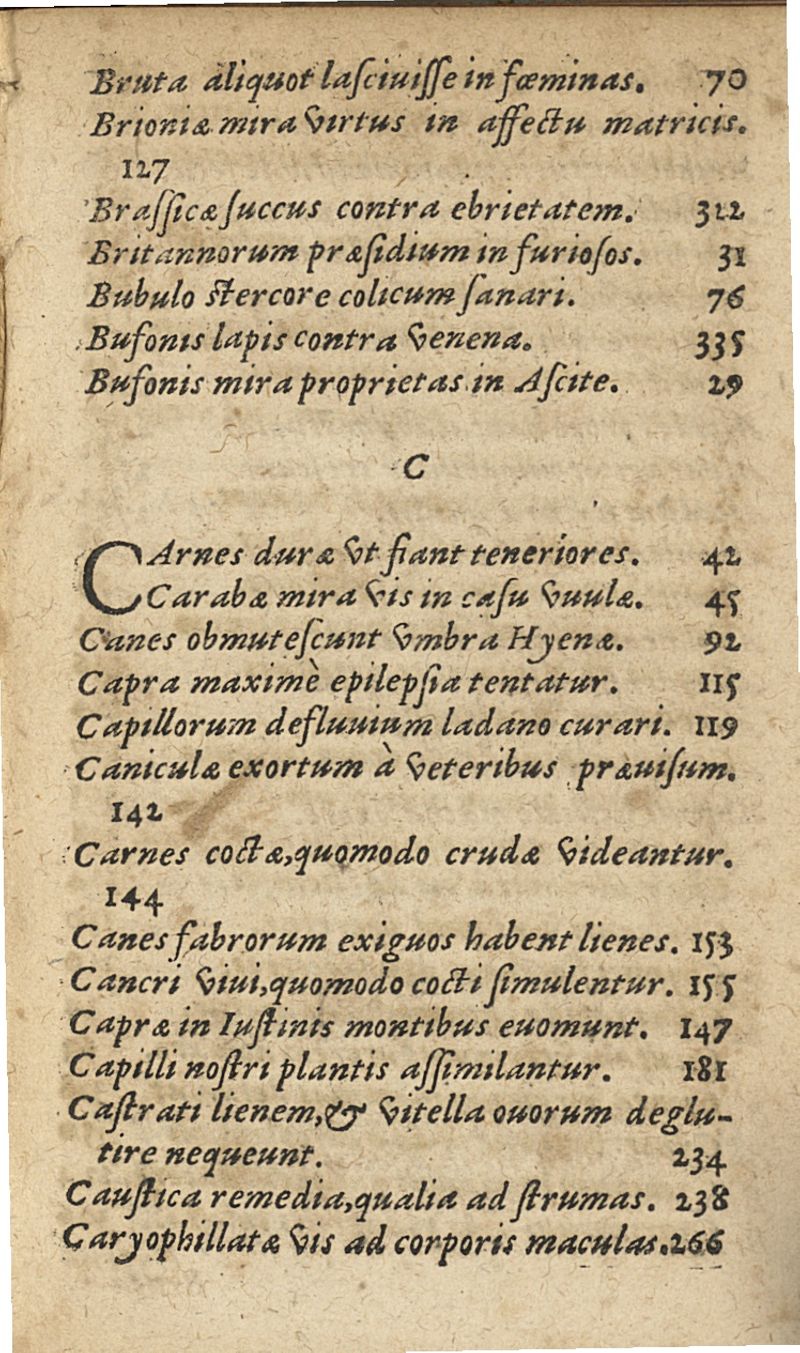 Bruta aliquot laſciuiſſe in fœminas. 70
Brioniæ mira virtus in affectu matricis.
127
Braſſicæ ſuccus contra ebrietatem. 312
Britannorum præſidium in furioſos. 31
Bubulo ſtercore colicum ſanari. 76
Bufonis lapis contra venena. 335
Bufonis mira proprietas in Aſcite. 29
C
CArnes duræ vt fiant teneriores. 42
Carabæ mira vis in caſu vuulæ. 45
Canes obmuteſcunt vmbra Hyenæ. 92
Capra maximè epilepſia tentatur. 115
Capillorum defluuium ladano curari. 119
Caniculæ exortum à veteribus præuiſum.
142
Carnes coctæ,quomodo crudæ videantur.
144
Canes fabrorum exiguos habent lienes. 153
Cancri viui,quomodo cocti ſimulentur. 155
Capræ in Iuſtinis montibus euomunt. 147
Capilli noſtri plantis aſſimilantur. 181
Caſtrati lienem,& vitella ouorum deglu-
tire nequeunt. 234
Cauſtica remedia,qualia ad ſtrumas. 238
Caryophillatæ vis ad corporis maculas.266